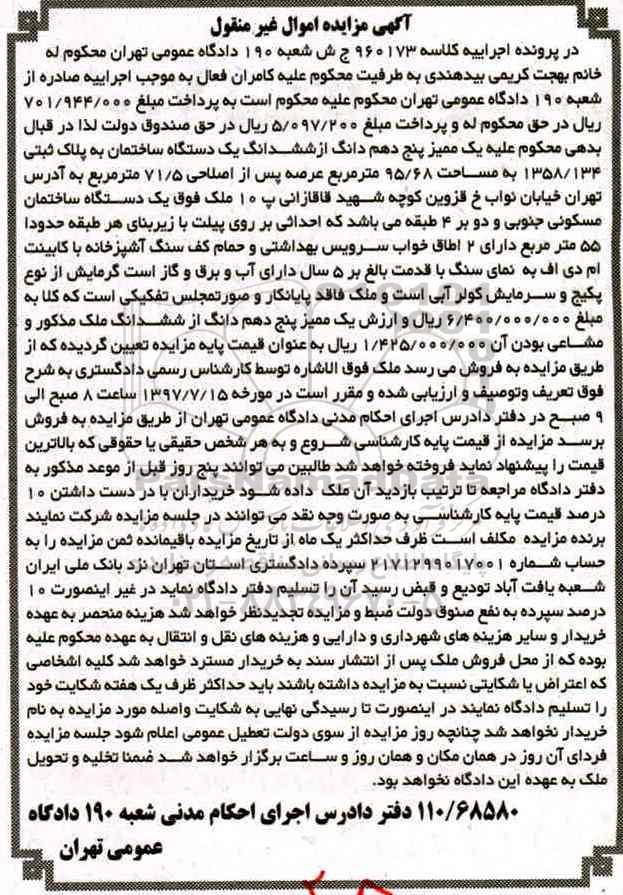 آگهی مزایده اموال غیر منقول
در پرونده اجراییه کلاسه ۹۶۰۱۷۳ ج ش شعبه ۱۹۰ دادگاه عمومی تهران محکوم له
خانم بهجت کریمی بیدهندی به طرفیت محکوم علیه کامران فعال به موجب اجراییه صادره از
شعبه ۱۹۰ دادگاه عمومی تهران محکوم علیه محکوم است به پرداخت مبلغ ۷۰۱/۹۴۴/۰۰۰
ریال در حق محکوم له و پرداخت مبلغ ۵/۰۹۷/۲۰۰ ریال در حق صندوق دولت لذا در قبال
بدهی محکوم علیه یک ممیز پنج دهم دانگ ازششدانگ یک دستگاه ساختمان به پلاک ثبتی
۱۳۵۸/۱۳۴ به مساحت ۹۵/۶۸ مترمربع عرصه پس از اصلاحی ۷۱/۵ مترمربع به آدرس
تهران خیابان نواب خ قزوین کوچه شهید قاقازانی پ ۱۰ ملک فوق یک دستگاه ساختمان
مسکونی جنوبی و دو بر ۴ طبقه می باشد که احداثی بر روی پیلت با زیربنای هر طبقه حدودا
۵۵ متر مربع دارای ۲ اطاق خواب سرویس بهداشتی و حمام کف سنگ آشپزخانه با کابینت
ام دی اف به نمای سنگ با قدمت بالغ بر ۵ سال دارای آب و برق و گاز است گرمایش از نوع
پکیج و سرمایش کولر آبی است و ملک فاقد پایانکار و صورتمجلس تفکیکی است که کلا به
مبلغ ۶/۴۰۰/۰۰۰/۰۰۰ ریال و ارزش یک ممیز پنج دهم دانگ از ششدانگ ملک مذکور و
مشاعی بودن آن ۱/۴۲۵/۰۰۰/۰۰۰ ریال به عنوان قیمت پایه مزایده تعیین گردیده که از
طریق مزایده به فروش می رسد ملک فوق الاشاره توسط کارشناس رسمی دادگستری به شرح
فوق تعریف وتوصیف و ارزیابی شده و مقرر است در مورخه ۱۳۹۷/۷/۱۵ ساعت ۸ صبح الی
۹ صبح در دفتر دادرس اجرای احکام مدنی دادگاه عمومی تهران از طریق مزایده به فروش
برسد مزایده از قیمت پایه کارشناسی شروع و به هر شخص حقیقی یا حقوقی که بالاترین
قیمت را پیشنهاد نماید فروخته خواهد شد طالبین می توانند پنج روز قبل از موعد مذکور به
دفتر دادگاه مراجعه تا ترتیب بازدید آن ملک داده شود خریداران با در دست داشتن ۱۰
درصد قیمت پایه کارشناسی به صورت وجه نقد می توانند در جلسه مزایده شرکت نمایند
برنده مزایده مکلف است ظرف حداکثر یک ماه از تاریخ مزایده باقیمانده ثمن مزایده را به
حساب شماره ۲۱۷۱۲۹۹۰۱۷۰۰۱ سپرده دادگستری استان تهران نزد بانک ملی ایران
شعبه یافت آباد تودیع و قبض رسید آن را تسلیم دفتر دادگاه نماید در غیر اینصورت ۱۰
درصد سپرده به نفع صنوق دولت ضبط و مزایده تجدیدنظر خواهد شد هزینه منحصر به عهده
خریدار و سایر هزینه های شهرداری و دارایی و هزینه های نقل و انتقال به عهده محکوم علیه
بوده که از محل فروش ملک پس از انتشار سند به خریدار مسترد خواهد شد کلیه اشخاصی
که اعتراض یا شکایتی نسبت به مزایده داشته باشند باید حداکثر ظرف یک هفته شکایت خود
را تسلیم دادگاه نمایند در اینصورت تا رسیدگی نهایی به شکایت واصله مورد مزایده به نام
خریدار نخواهد شد چنانچه روز مزایده از سوی دولت تعطیل عمومی اعلام شود جلسه مزایده
فردای آن روز در همان مکان و همان روز و ساعت برگزار خواهد شد ضمنا تخلیه و تحویل
ملک به عهده این دادگاه نخواهد بود.
۱۱۰/۶۸۵۸۰ دفتر دادرس اجرای احکام مدنی شعبه ۱۹۰ دادگاه
عمومی تهران